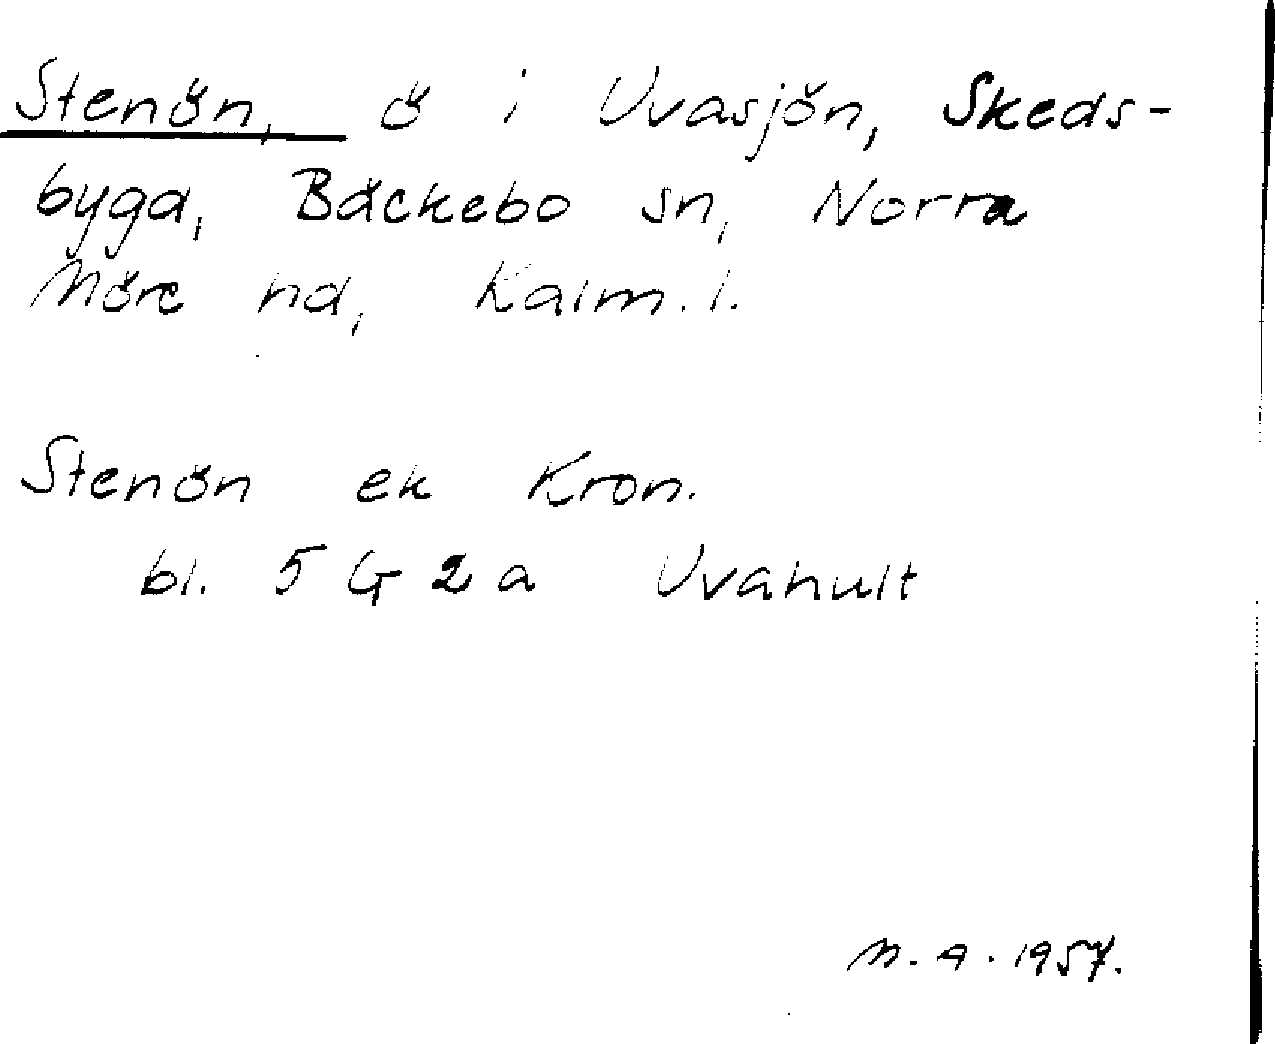 Stenön, ö i Uvasjön, Skeds-
bygd, Bäckebo sn, Norra
Möre hd, Kalm. l.
Stenön ek Kron.
bl. 5 G 2 a Uvahult
M. A. 1957.